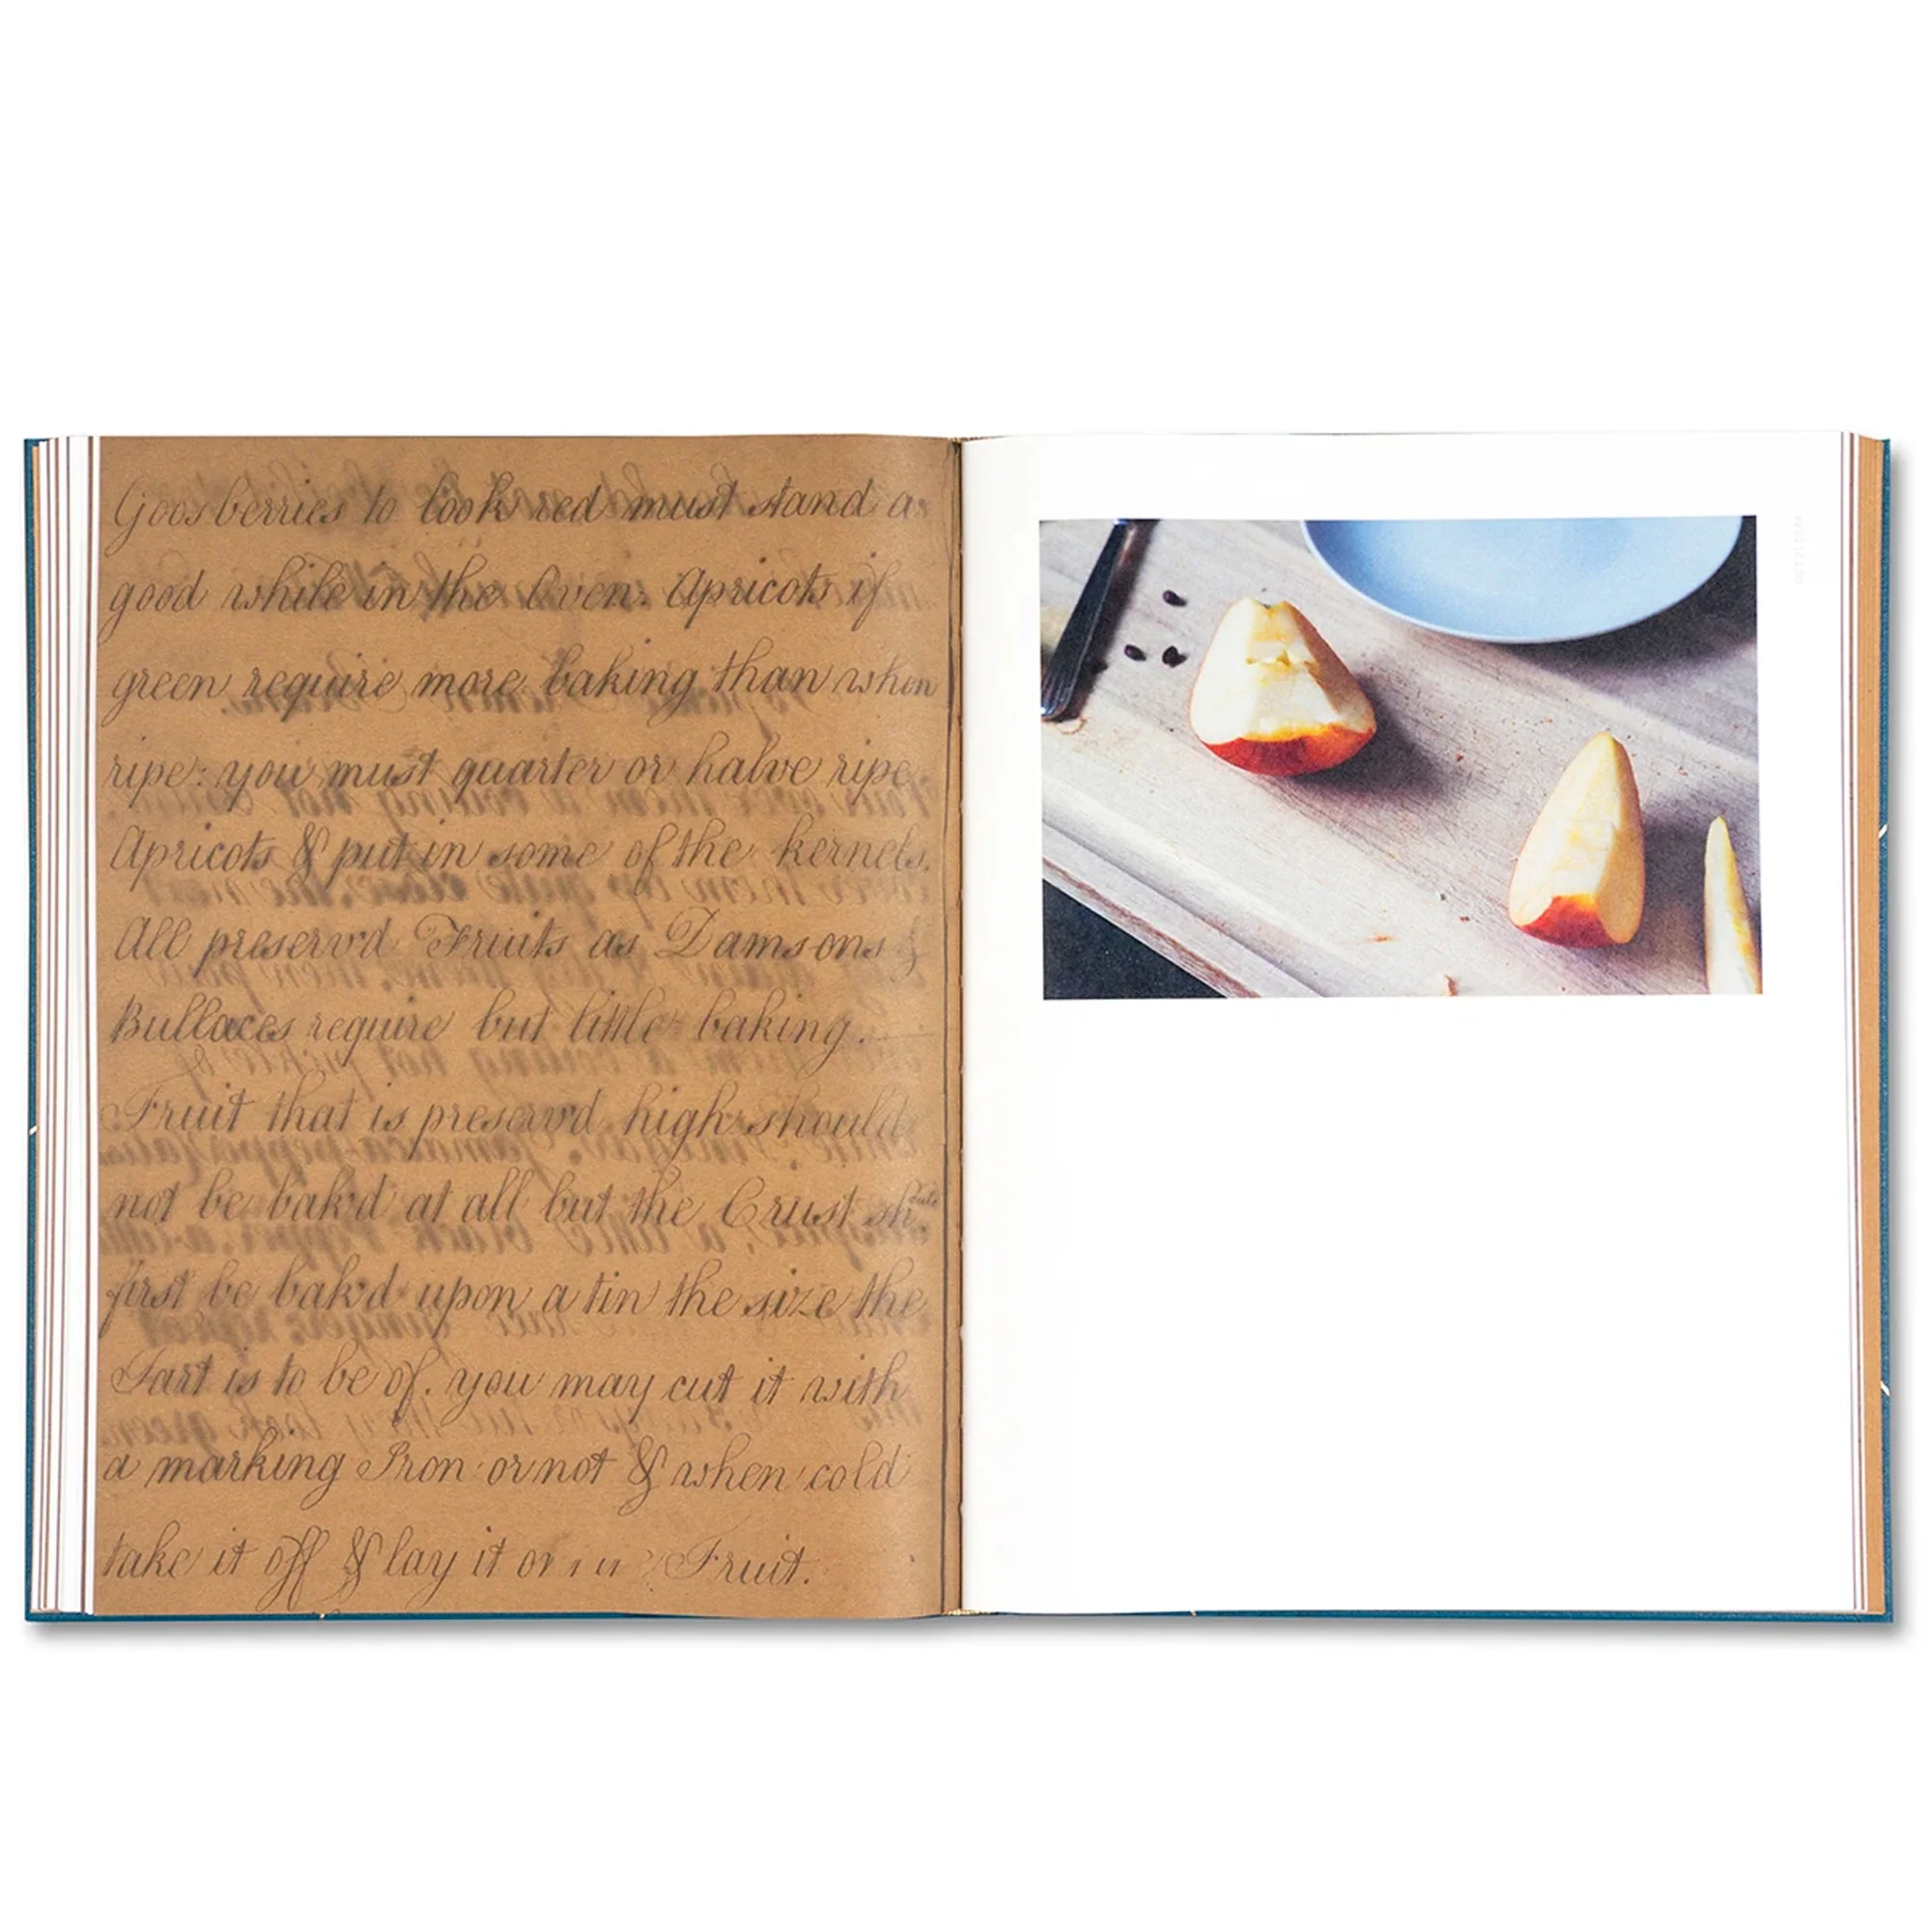 Goosberries to look red must stand a
good while in the Oven. Apricots if
green require more baking than when
ripe: you must quarter or halve ripe
Apricots & put in some of the kernels.
All preserv'd Fruits as Damsons &
Bullaces require but little baking.
Fruit that is preserv'd high should
not be bak'd at all but the Crust sh.ould
first be bak'd upon a tin the size the
Tart is to be of. you may cut it with
a marking Iron or not & when cold
take it off & lay it Fruit.